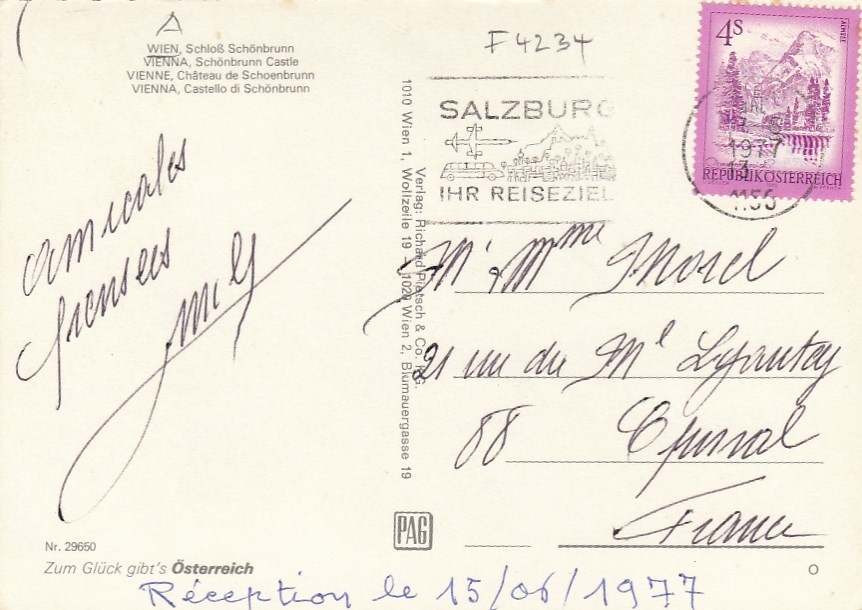 WIEN, Schloß Schönbrunn
VIENNA, Schönbrunn Castle
VIENNE, Château de Schoenbrunn
VIENNA, Castello di Schönbrunn
F4234
SALZBURG
IHR REISEZIEL
1977
4S
REPUBLIK ÖSTERREICH
amicales
pensées
Verlag: Richard Pietsch & Co. KG.
1010 Wien 1, Wollzeile 19 – 1020 Wien 2, Blumauergasse 19
Mr & Mme Morel
21 rue du Ml Lyautey
88 Epinal
France
PAG
Nr. 29650
Zum Glück gibt's Österreich
Réception le 15/06/1977